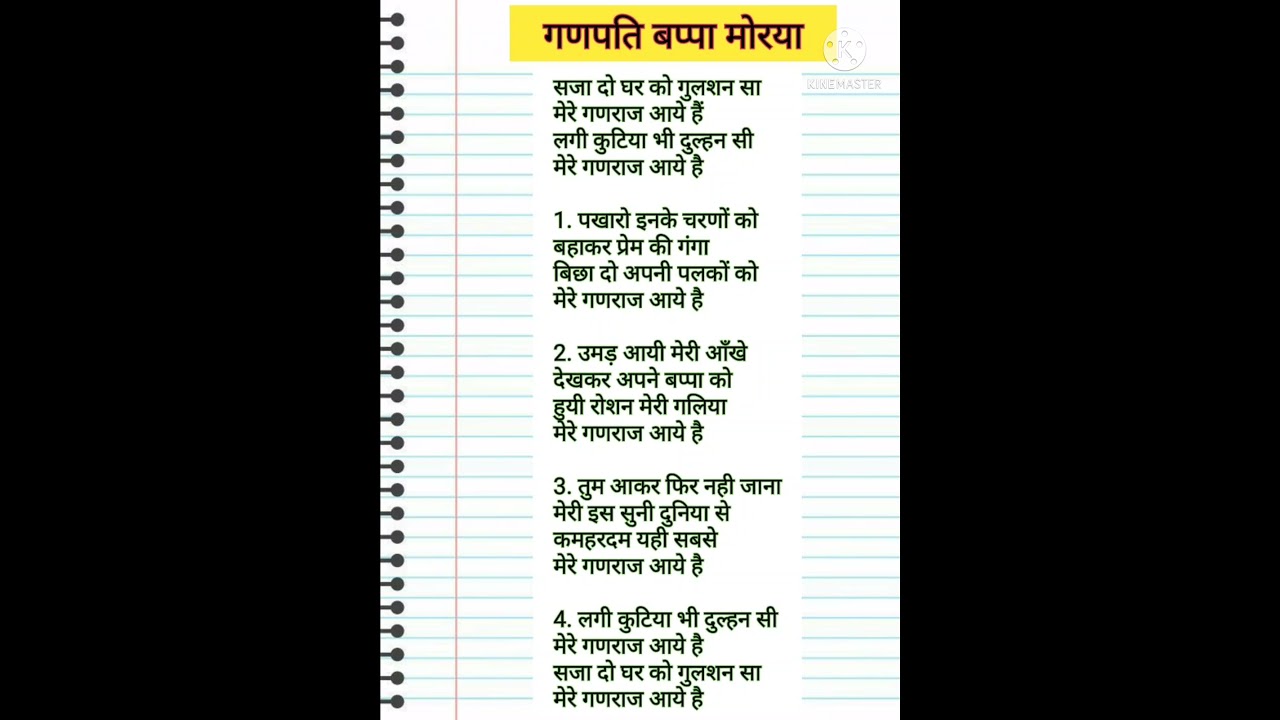 गणपति बप्पा मोरया
KINEMASTER
सजा दो घर को गुलशन सा
मेरे गणराज आये हैं
लगी कुटिया भी दुल्हन सी
मेरे गणराज आये है
1. पखारो इनके चरणों को
बहाकर प्रेम की गंगा
बिछा दो अपनी पलकों को
मेरे गणराज आये है
2. उमड़ आयी मेरी आँखे
देखकर अपने बप्पा को
हुयी रोशन मेरी गलिया
मेरे गणराज आये है
3. तुम आकर फिर नही जाना
मेरी इस सुनी दुनिया से
कमहरदम यही सबसे
मेरे गणराज आये है
4. लगी कुटिया भी दुल्हन सी
मेरे गणराज आये है
सजा दो घर को गुलशन सा
मेरे गणराज आये है